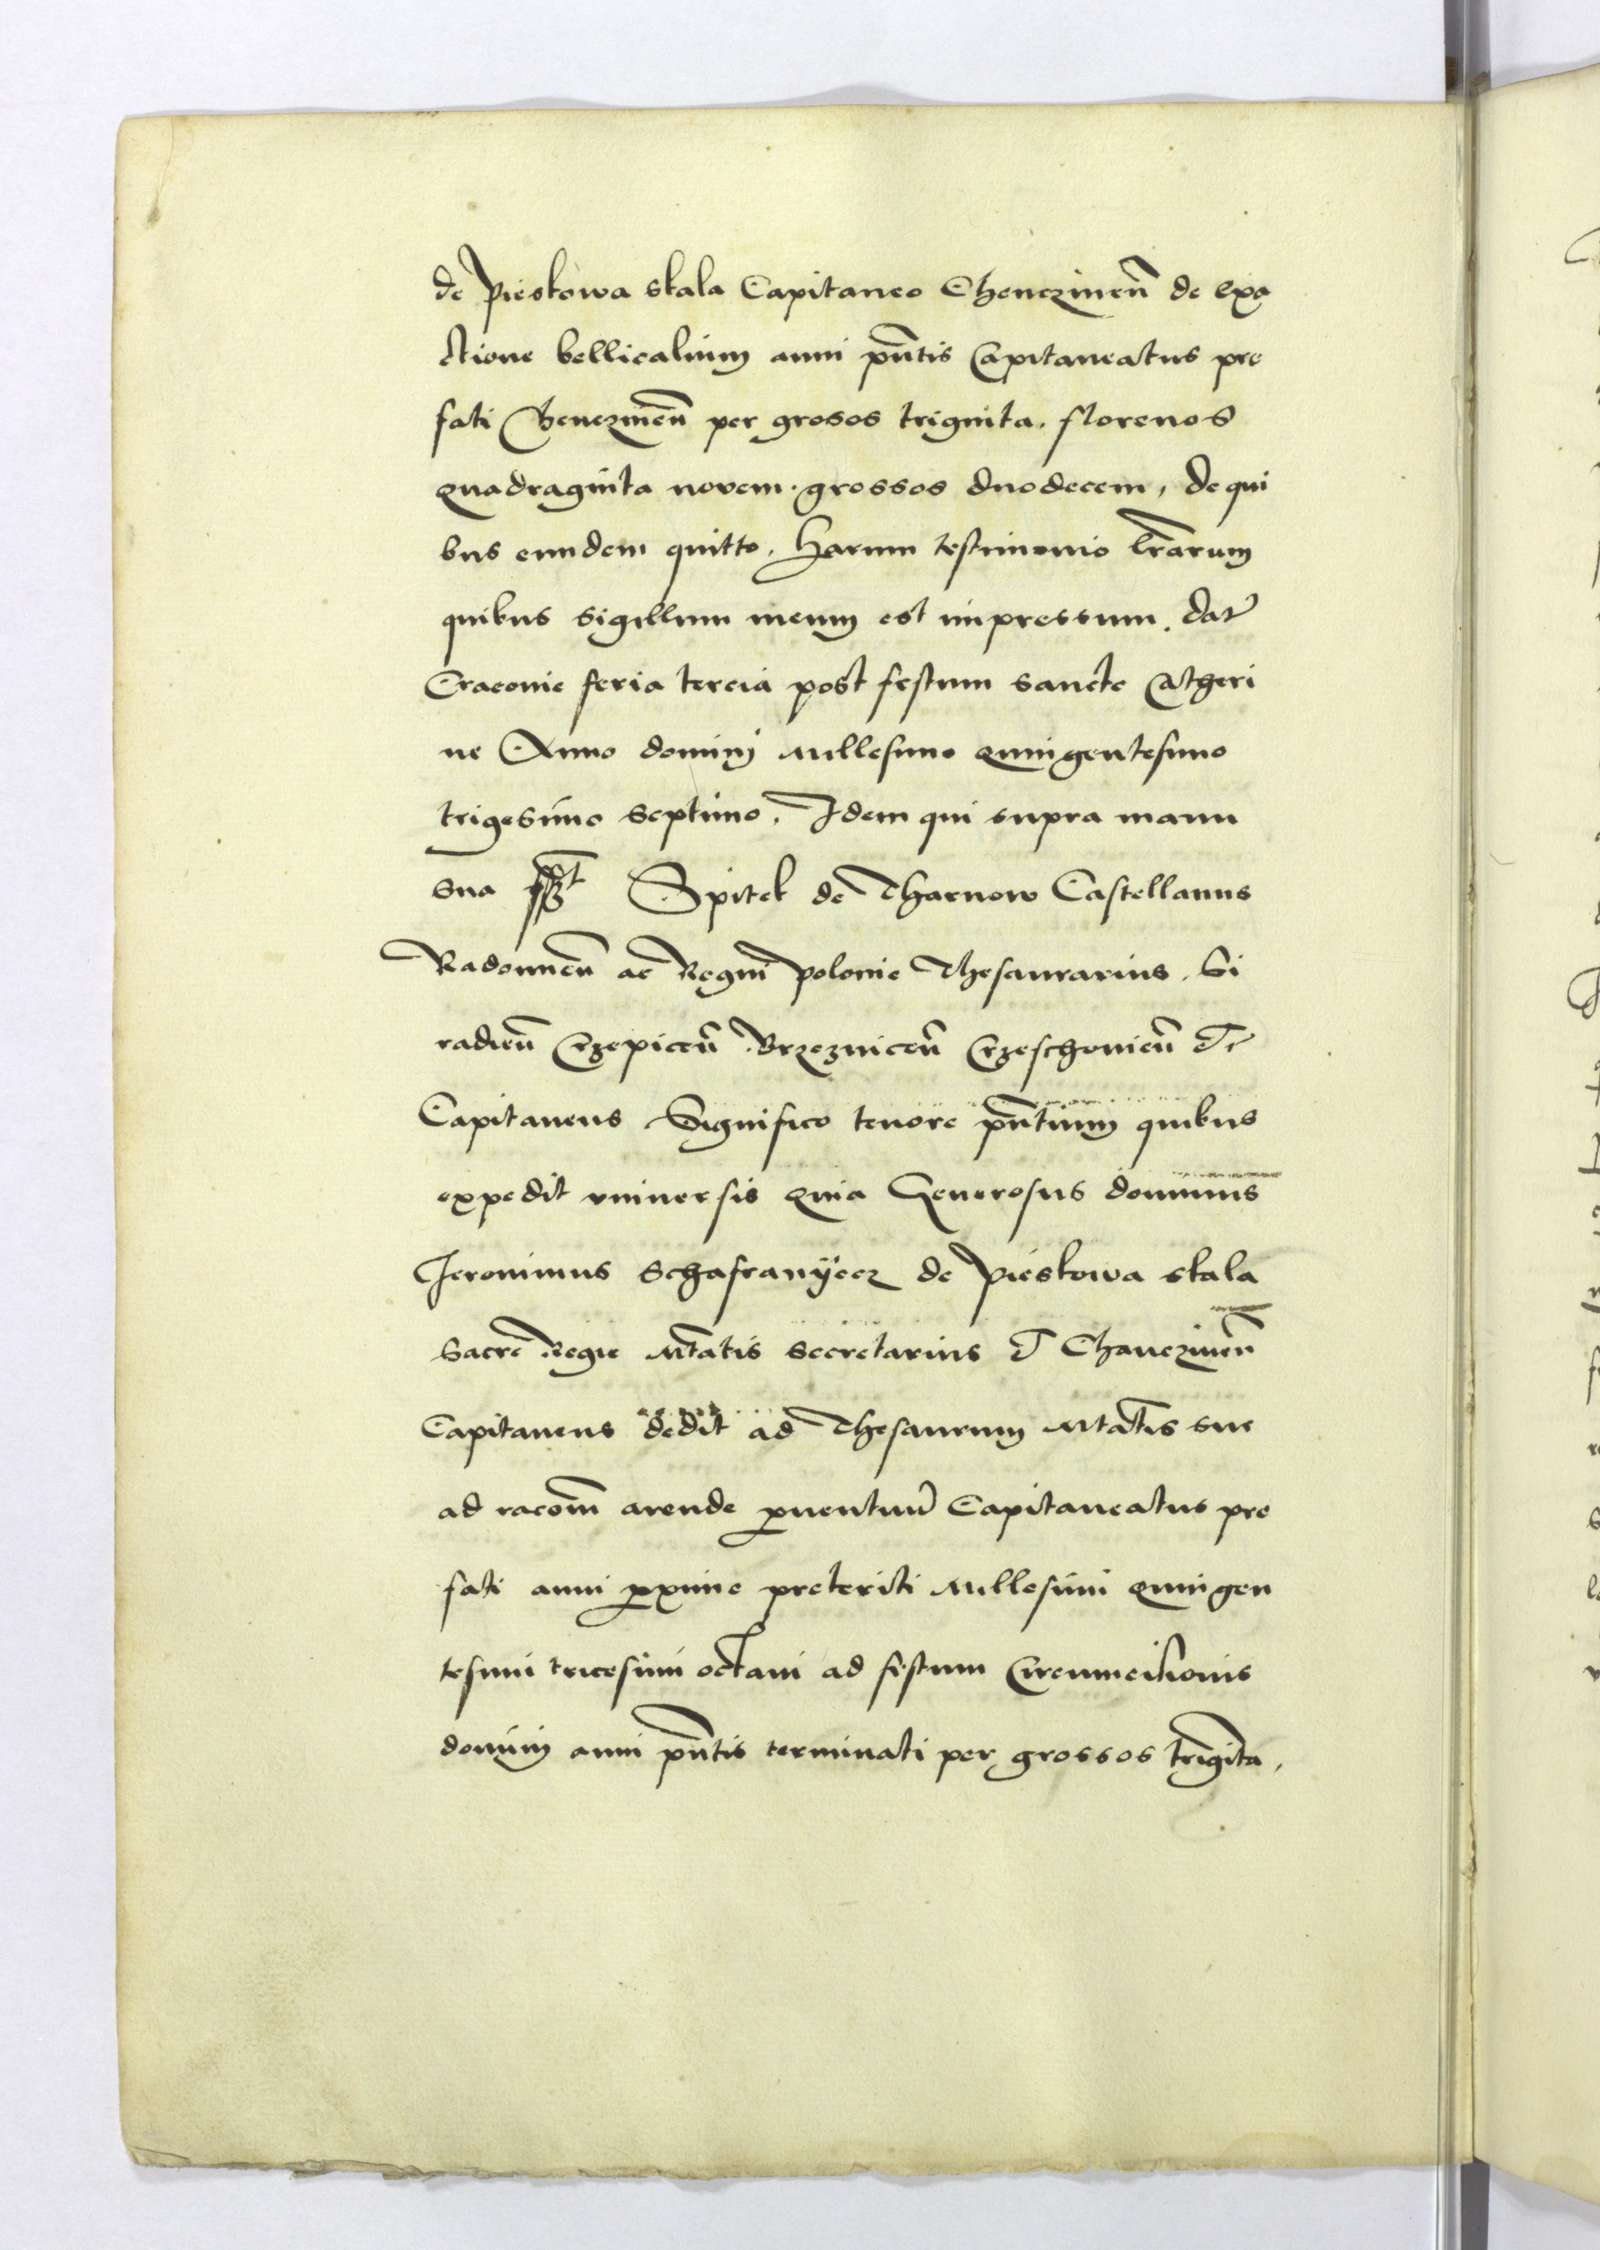 de Pieskowa skala Capitaneo Chenczineñ de exa
ctione bellicalium anni pñtis Capitaneatus pre
fati Chenczineñ per grosos triginta. florenos
quadraginta novem. grossos duodecem, de qui
bus eundem quitto. Harum testimonio lr̃arum
quibus sigillum meum est impressum. dat̃
Cracovie feria tercia post festum sancte Catheri
ne Anno domini Millesimo quingentesimo
trigesimo septimo. Idem qui supra manu
sua Spitek de Tharnow Castellanus
Radomieñ ac Regni Polonie Thesaurarius. Si
radieñ Crzepiceñ Brzezniceñ Crzeschovieñ et
Capitaneus Significo tenore pñtium quibus
expedit universis quia Generosus dominus
Jeronimus Schafranyecz de Pieskowa skala
Sacre Regie Mtatis secretarius et Chanczineñ
Capitaneus dedit ad Thesaurum Mtatis sue
ad racoñm arende pventuũ Capitaneatus pre
fati anni pxime preteriti Millesimi quingen
tesimi tricesimi octavi ad festum Circumcisionis
domini anni pñtis terminati per grossos trigita,